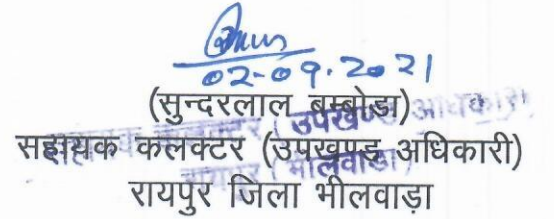 02-09.2021
(सुन्दरलाल बम्बोडा)
सहायक कलक्टर (उपखण्ड अधिकारी)
रायपुर जिला भीलवाड़ा